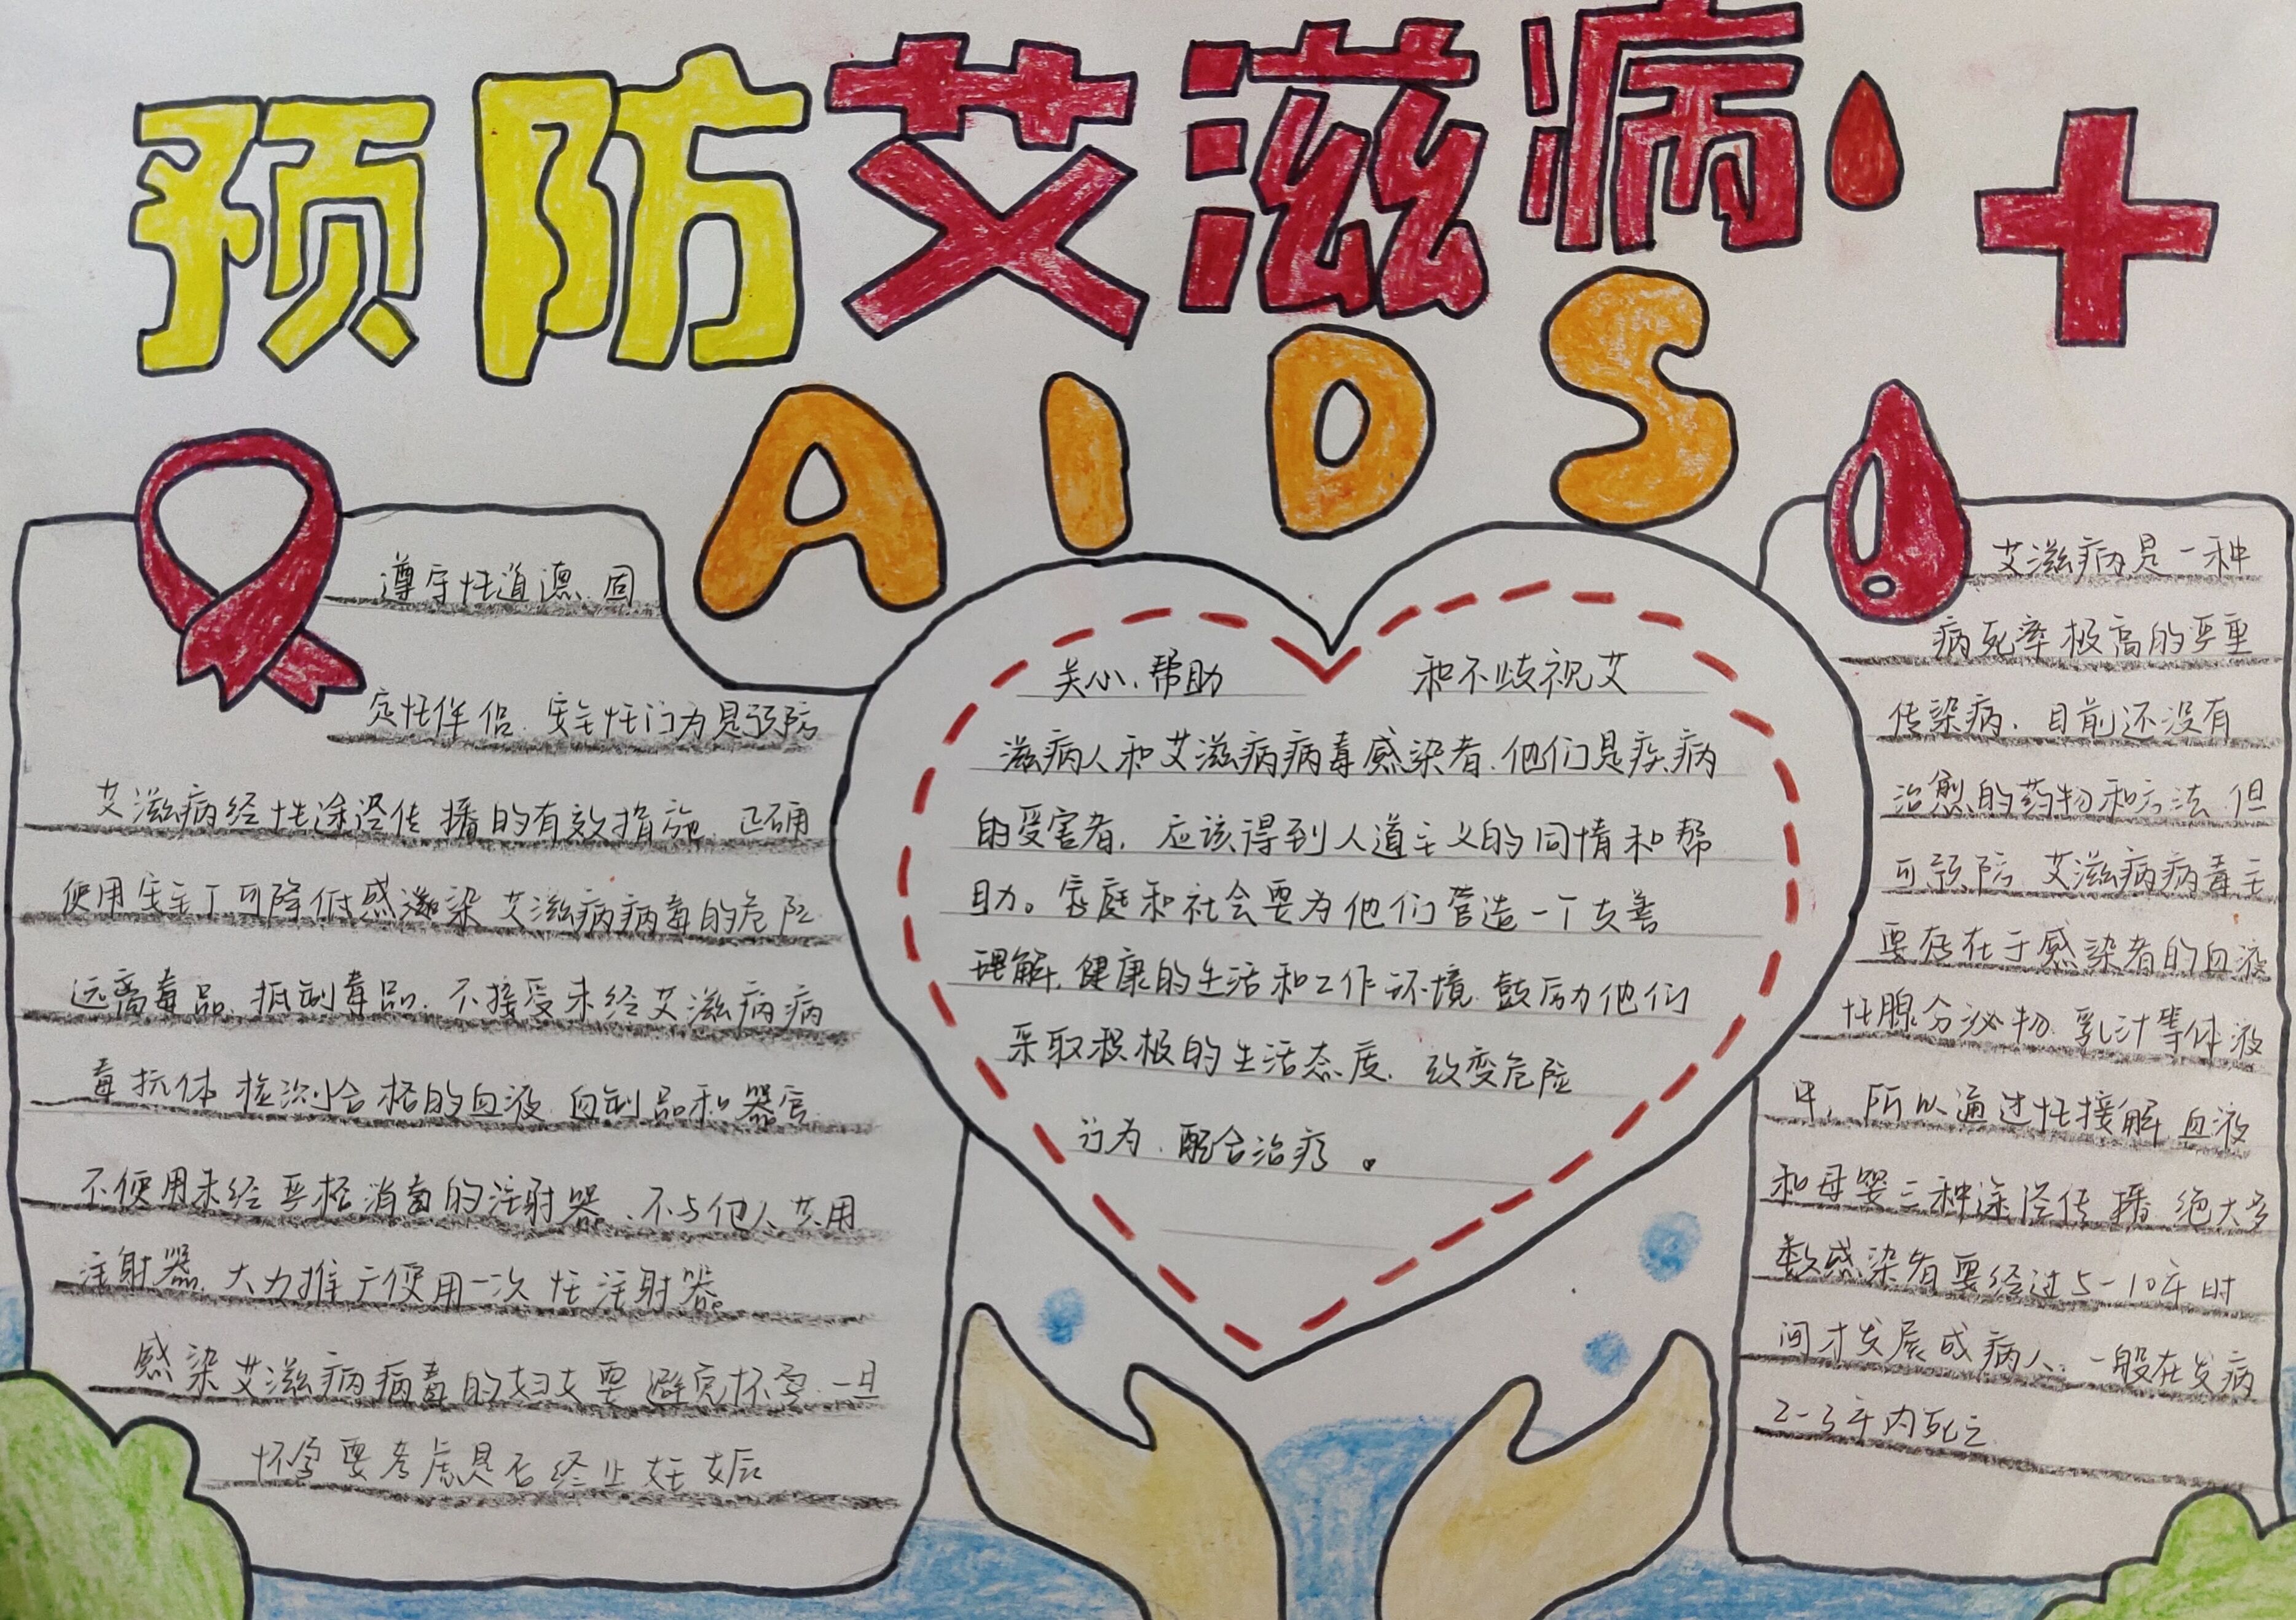 预防艾滋病
AIDS
遵守性道德.固
定性伴侣.安全性行为是预防
艾滋病经性途径传播的有效措施.正确
使用安全丁可降低感滋染艾滋病病毒的危险
远离毒品.抵制毒品.不接受未经艾滋病病
毒抗体检测合格的血液.血制品和器官.
不使用未经严格消毒的注射器、不与他人共用
注射器.大力推广使用一次性注射器。
感染艾滋病病毒的妇女要避免怀孕.一旦
怀孕要考虑是否终止妊娠
关心、帮助 和不歧视艾
滋病人和艾滋病病毒感染者.他们是疾病
的受害者，应该得到人道主义的同情和帮
助。家庭和社会要为他们营造一个友善
理解.健康的生活和工作环境.鼓励他们
采取积极的生活态度.改变危险
行为.配合治疗。
艾滋病是一种
病死率极高的严重
传染病.目前还没有
治愈的药物和方法.但
可预防.艾滋病病毒主
要存在于感染者的血液
性腺分泌物.乳汁等体液
中，所以通过性接解.血液
和母婴三种途径传播.绝大多
数感染者要经过5-10年时
间才发展成病人.一般在发病
2-3年内死亡